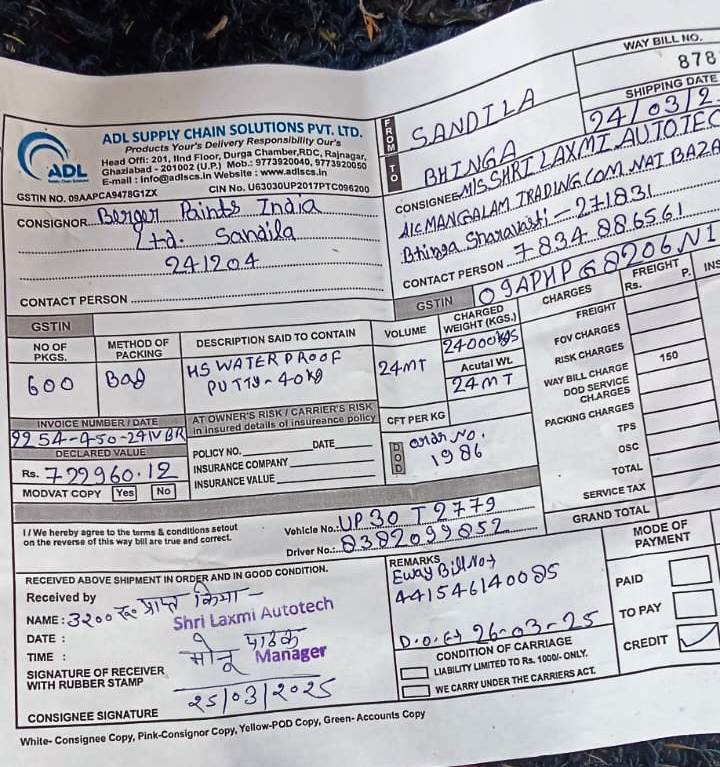 WAY BILL NO.
878
SHIPPING DATE
24/03/2
ADL
ADL SUPPLY CHAIN SOLUTIONS PVT. LTD.
Products Your's Delivery Responsibility Our's
Head Offi: 201, IInd Floor, Durga Chamber,RDC, Rajnagar,
Ghaziabad - 201002 (U.P.) Mob.: 9773920040, 9773920050
E-mail : info@adlscs.in Website : www.adlscs.in
CIN No. U63030UP2017PTC096200
GSTIN NO. 09AAPCA9478G1ZX
FROM SANDILA
TO BHINGA
CONSIGNOR Berger Paints India
Ltd. Sandila
241204
CONTACT PERSON
CONSIGNEE M/S SHRI LAXMI AUTOTEC
A/C MANGALAM TRADING COM. NAI BAZA
Bhinga Sharavasti - 271831
CONTACT PERSON 7834886561
GSTIN 09APHPG8206N1
GSTIN
NO OF PKGS.
METHOD OF PACKING
DESCRIPTION SAID TO CONTAIN
VOLUME
CHARGED WEIGHT (KGS.)
CHARGES
FREIGHT
Rs. P.
INS
600
Bag
HS WATER PROOF
PUTTY - 40kg
24MT
24000kgs
Acutal Wt.
24MT
FREIGHT
FOV CHARGES
RISK CHARGES
WAY BILL CHARGE 150
DOD SERVICE CHARGES
PACKING CHARGES
TPS
OSC
TOTAL
SERVICE TAX
GRAND TOTAL
INVOICE NUMBER / DATE
DECLARED VALUE
Rs. 729960.12
MODVAT COPY Yes No
AT OWNER'S RISK / CARRIER'S RISK
in insured details of insureance policy
POLICY NO. DATE
INSURANCE COMPANY
INSURANCE VALUE
CFT PER KG
DOD
No.
1986
I / We hereby agree to the terms & conditions setout
on the reverse of this way bill are true and correct.
Vehicle No.: UP30 T2779
Driver No.: 8382099852
RECEIVED ABOVE SHIPMENT IN ORDER AND IN GOOD CONDITION.
Received by
NAME : 3200 रु० प्राप्त किया -
Shri Laxmi Autotech
DATE :
TIME :
मोनू पाठक
Manager
SIGNATURE OF RECEIVER
WITH RUBBER STAMP
25/03/2025
CONSIGNEE SIGNATURE
REMARKS
Eway Bill No→
441546140085
26-03-25
CONDITION OF CARRIAGE
LIABILITY LIMITED TO Rs. 1000/- ONLY.
WE CARRY UNDER THE CARRIERS ACT.
MODE OF PAYMENT
PAID
TO PAY
CREDIT
White- Consignee Copy, Pink-Consignor Copy, Yellow-POD Copy, Green- Accounts Copy